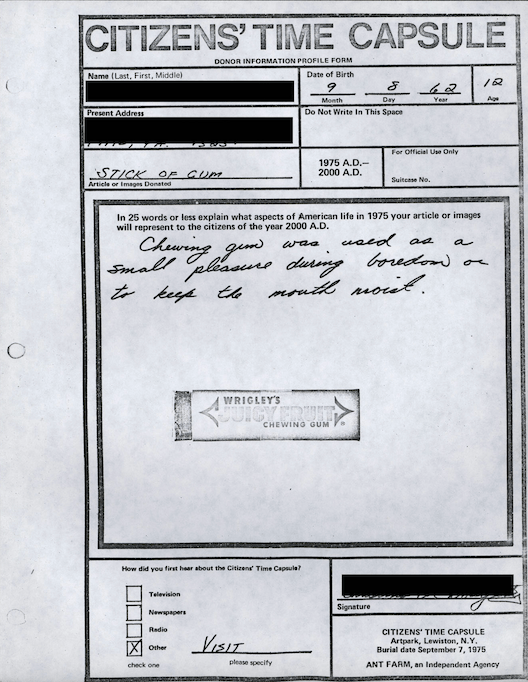 CITIZENS' TIME CAPSULE
DONOR INFORMATION PROFILE FORM
Name (Last, First, Middle)
Date of Birth
9 8 62 12
Month Day Year Age
Present Address
Do Not Write In This Space
STICK OF GUM
Article or Images Donated
1975 A.D.—
2000 A.D.
For Official Use Only
Suitcase No.
In 25 words or less explain what aspects of American life in 1975 your article or images
will represent to the citizens of the year 2000 A.D.
Chewing gum was used as a
small pleasure during boredom or
to keep the mouth moist.
WRIGLEY'S
JUICY FRUIT
CHEWING GUM ®
How did you first hear about the Citizens' Time Capsule?
Television
Newspapers
Radio
X Other VISIT
check one please specify
Signature
CITIZENS' TIME CAPSULE
Artpark, Lewiston, N.Y.
Burial date September 7, 1975
ANT FARM, an Independent Agency